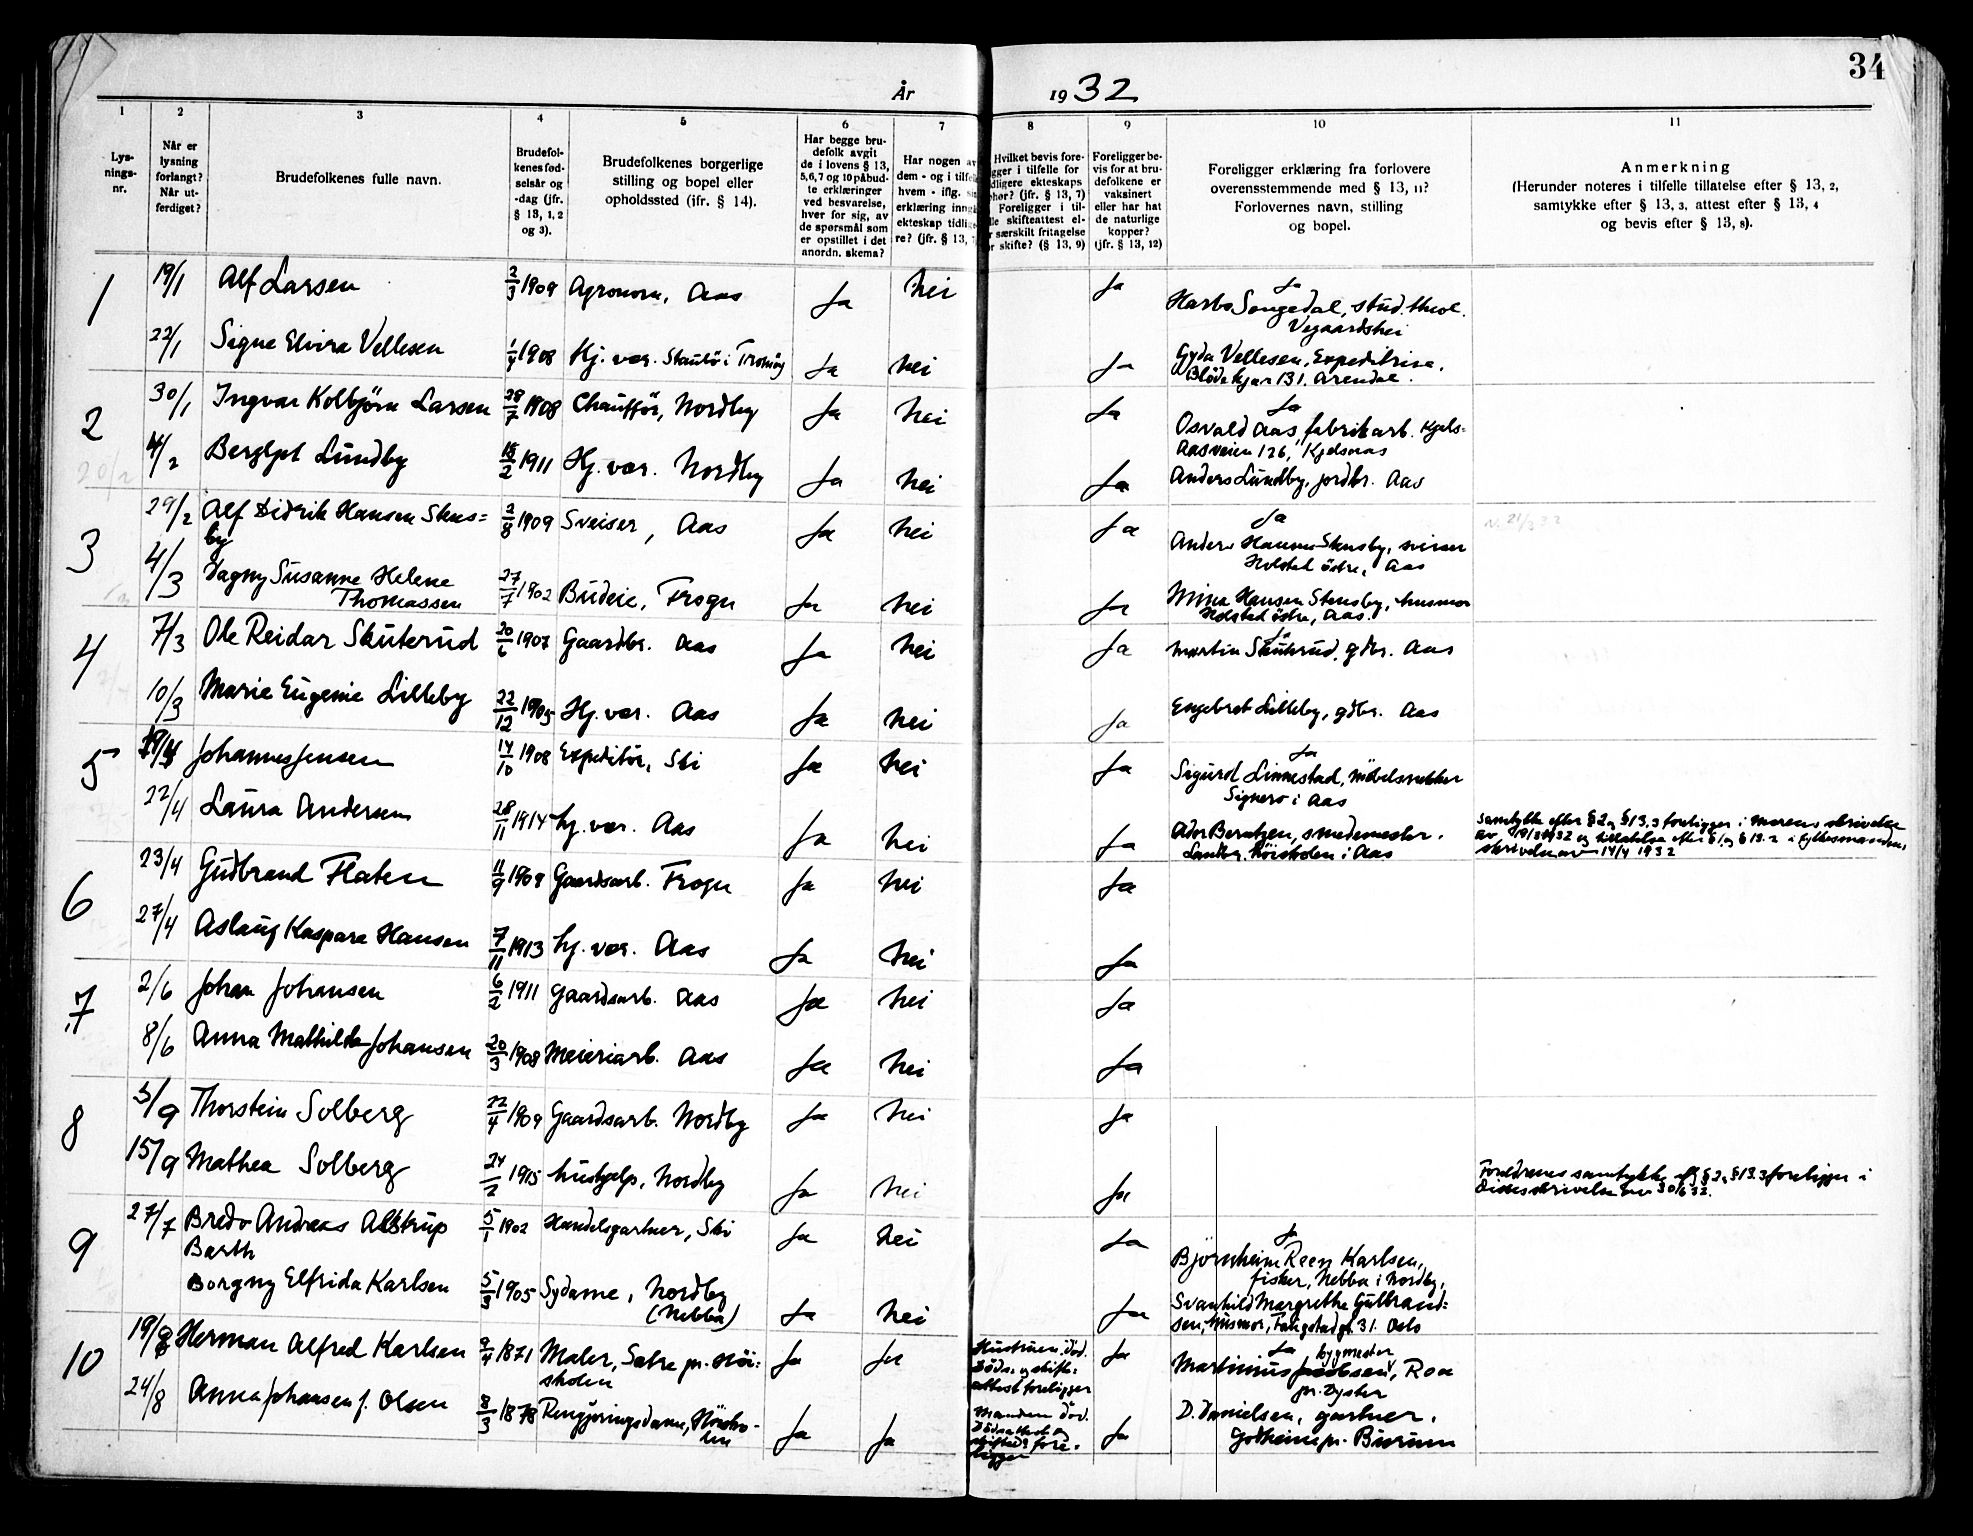 34
År 1932
1 2 3 4 5 6 7 8 9 10 11
Lys-
nings-
nr.
Når er
lysning
forlangt?
Når ut-
ferdiget?
Brudefolkenes fulle navn.
Brudefol-
kenes fød-
selsår og
-dag (jfr.
§ 13, 1, 2
og 3).
Brudefolkenes borgerlige
stilling og bopel eller
opholdssted (ifr. § 14).
Har begge bru-
defolk avgit
de i lovens § 13,
5,6,7 og 10 påbud-
te erklæringer
ved besvarelse,
hver for sig, av
de spørsmål som
er opstillet i det
anordn. skema?
Har nogen av
dem - og i tilfe
hvem - iflg. si
erklæring inng
ekteskap tidlig
re? (jfr. § 13,
Hvilket bevis fore-
gger i tilfelle for
dligere ekteskaps
phør? (jfr. § 13, 7)
Foreligger i til-
lle skifteattest el-
r særskilt fritagelse
r skifte? (§ 13, 9)
Foreligger be-
vis for at bru-
defolkene er
vaksinert
eller har hat
de naturlige
kopper?
(jfr. § 13, 12)
Foreligger erklæring fra forlovere
overensstemmende med § 13, 11?
Forlovernes navn, stilling
og bopel.
Anmerkning
(Herunder noteres i tilfelle tillatelse efter § 13, 2,
samtykke efter § 13, 3, attest efter § 13, 4
og bevis efter § 13, 8).
1 19/1 Alf Larsen 2/3 1909 Agronom, Aas Ja Nei Ja Ja
Songedal, stud. theol.
Vegaardshei
22/1 Signe Elvira Vellesen 1908 Hj. vær. Ja Nei Ja Gyda Vellesen, Expeditrise,
Blødekjær 131. Arendal.
2 30/1 Ingvar Kolbjörn Larsen 28/7 1908 Chaufför, Nordby Ja Nei Ja Ja
Osvald Aas, fabrikarb. Kjels-
aasveien 126, Kjelsaas
4/2 Bergljot Lundby 1911 Hj. vær. Nordby Ja Nei Ja Anders Lundby, jordbr. Aas
3 29/2 Alf Didrik Hansen Stens=
by 2/8 1909 Sveiser, Aas Ja Nei Ja Ja
Hansen Stensby, sveiser
Holstad østre, Aas
4/3 Dagny Susanne Helene
Thomassen 27/7 1902 Budeie, Frogn Ja Nei Ja Mina Hansen Stensby, husmor
Holstad østre, Aas.
4 7/3 Ole Reidar Skuterud 20/6 1907 Gaardbr. Aas Ja Nei Ja Ja
Martin Skuterud, gdbr. Aas
10/3 Marie Eugenie Lilleby 22/12 1905 Hj. vær. Aas Ja Nei Ja Engebret Lilleby, gdbr. Aas
5 Johannes Jensen 14/10 1908 Expeditør, Ski Ja Nei Ja Ja
Sigurd Linnestad, möbelsnekker
i Aas
22/4 Laura Andersen 28/11 1914 hj. vær. Aas Ja Nei Ja Berntzen, smedemester.
i Aas
Samtykke efter § 2, § 13.3 foreligger i morens skrivelse
av 1932 og tillatelse efter § 1, § 13.2 i fylkesmandens
skrivelse av 14/4 1932
6 23/4 Gudbrand Flaten 11/9 1909 Gaardsarb. Frogn Ja Nei Ja
27/4 Aslaug Kaspara Hansen 7/11 1913 hj. vær. Aas Ja Nei Ja
7 2/6 Johan Johansen 6/2 1911 Gaardsarb. Aas Ja Nei Ja
8/6 Anna Mathilde Johansen 20/3 1908 Meieriarb. Aas Ja Nei Ja
8 5/9 Thorstein Solberg 22/4 1909 Gaardsarb. Nordby Ja Nei Ja
15/9 Mathea Solberg 24/2 1915 hushjelp, Nordby Ja Nei Ja
Foreldrenes samtykke eft § 2, § 13.3 foreligger i
skrivelse 30/6 32.
9 27/7 Bredo Andreas Alstrup
Barth 5/1 1902 Handelsgartner, Ski Ja Nei Ja Ja
Björnheim Reen Karlsen,
fisker, Nebba i Nordby,
Borgny Elfrida Karlsen 5/3 1905 Sydame, Nordby
(Nebba) Ja Nei Ja Svanhild Margrethe Gulbrand=
sen, husmor, 31. Oslo
10 19/8 Herman Alfred Karlsen 1871 Maler, Sætre pr. Höi-
skolen Ja Ja Hustruen död.
Döds- og skifte-
attest foreligger Ja Ja bygmester
Martinius Jacobsen, Roa
pr. Dyster
24/8 Anna Johansen f. Olsen 8/3 1878 Rengjöringsdame, Höisko-
len Ja Ja Manden död.
Dödsattest og
skifteatt fore-
ligger Ja D. Danielsen, gartner,
Golheim pr. Burum